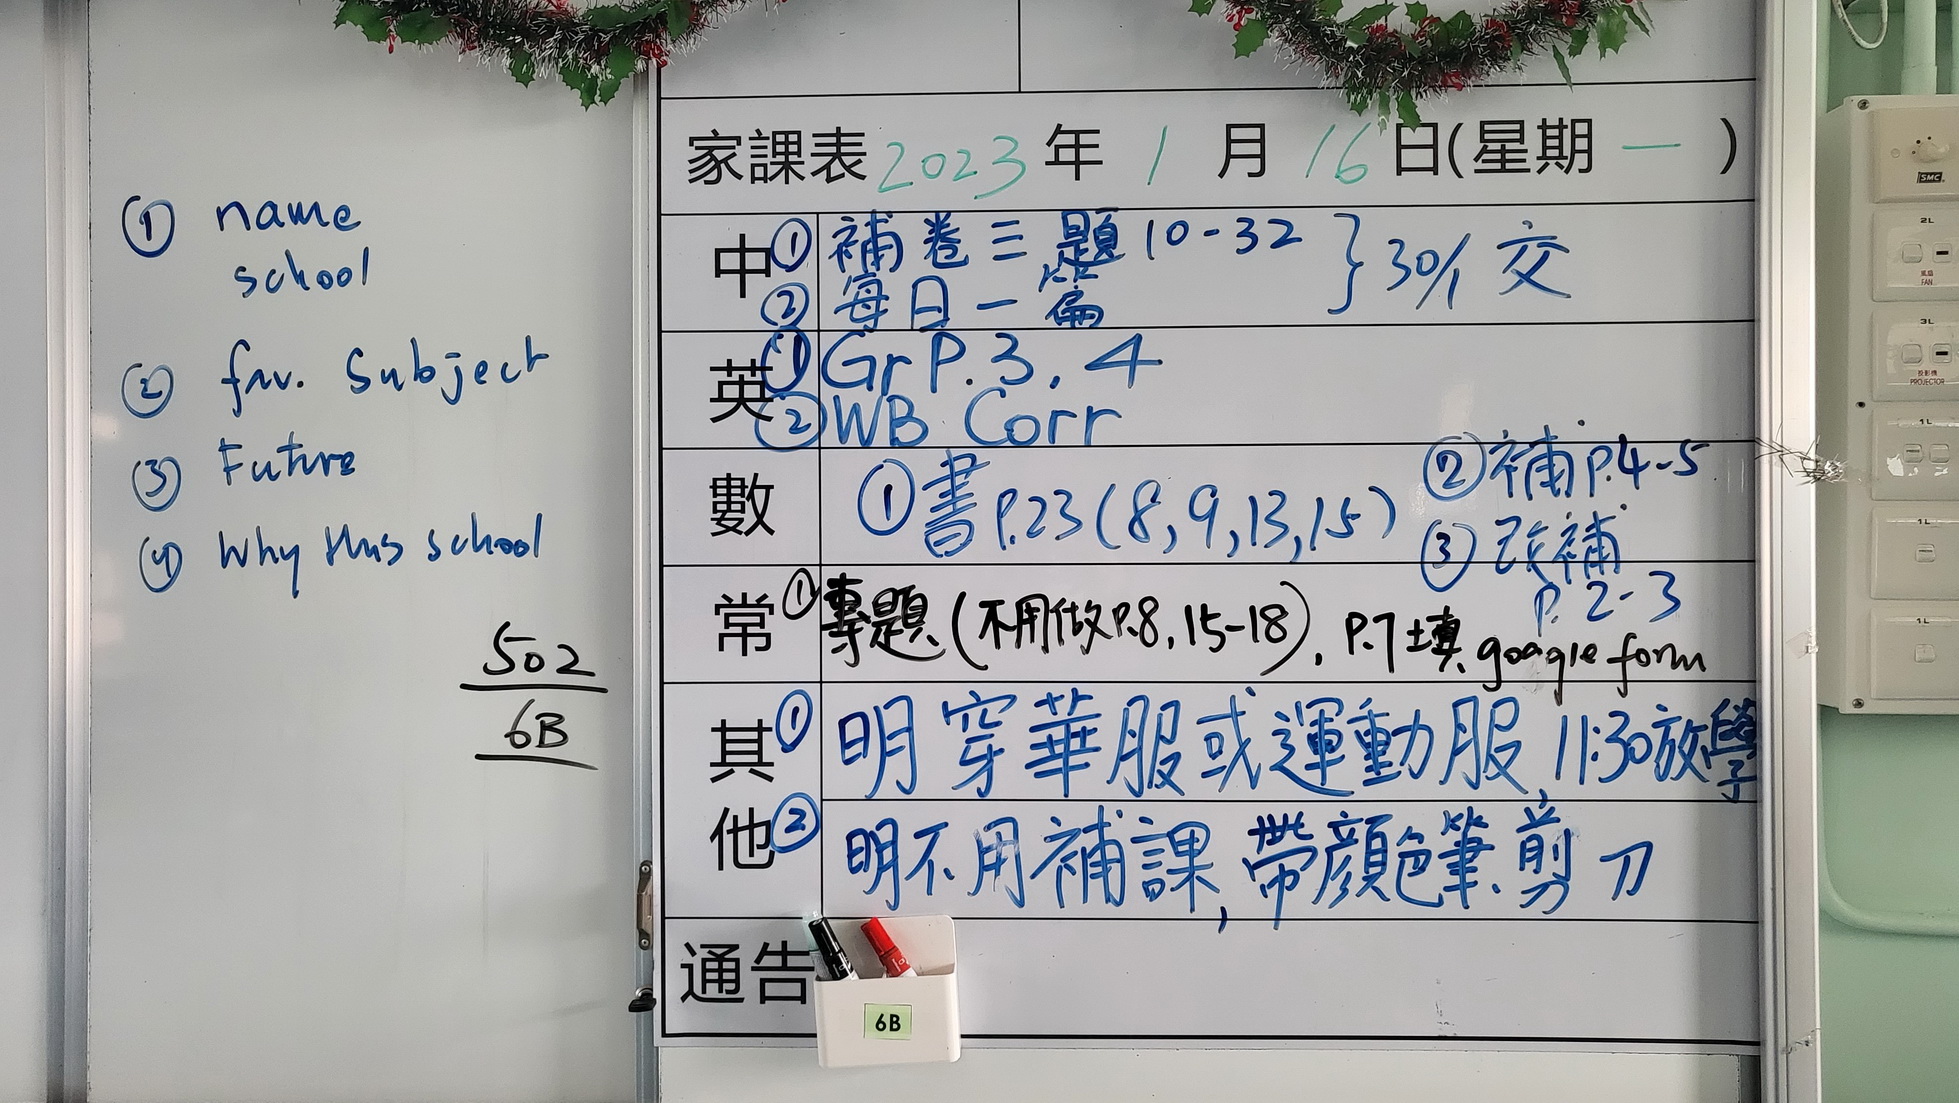 ① name
school
② fav. Subject
③ Future
④ Why this school
502
6B
家課表 2023 年 1 月 16 日(星期 一 )
中 ① 補卷三題10-32 } 30/1 交
② 每日一篇
英 ① Gr P.3, 4
② WB Corr
數 ① 書 P.23 (8, 9, 13, 15)
② 補 P.4-5
③ 改補
P. 2-3
常 ① 專題 (不用做P.8, 15-18), P.7填 google form
其他 ① 明穿華服或運動服, 11:30放學
② 明不用補課, 帶顏色筆、剪刀
通告
6B
SMC
2L
風扇
FAN
3L
投影機
PROJECTOR
1L
1L
1L